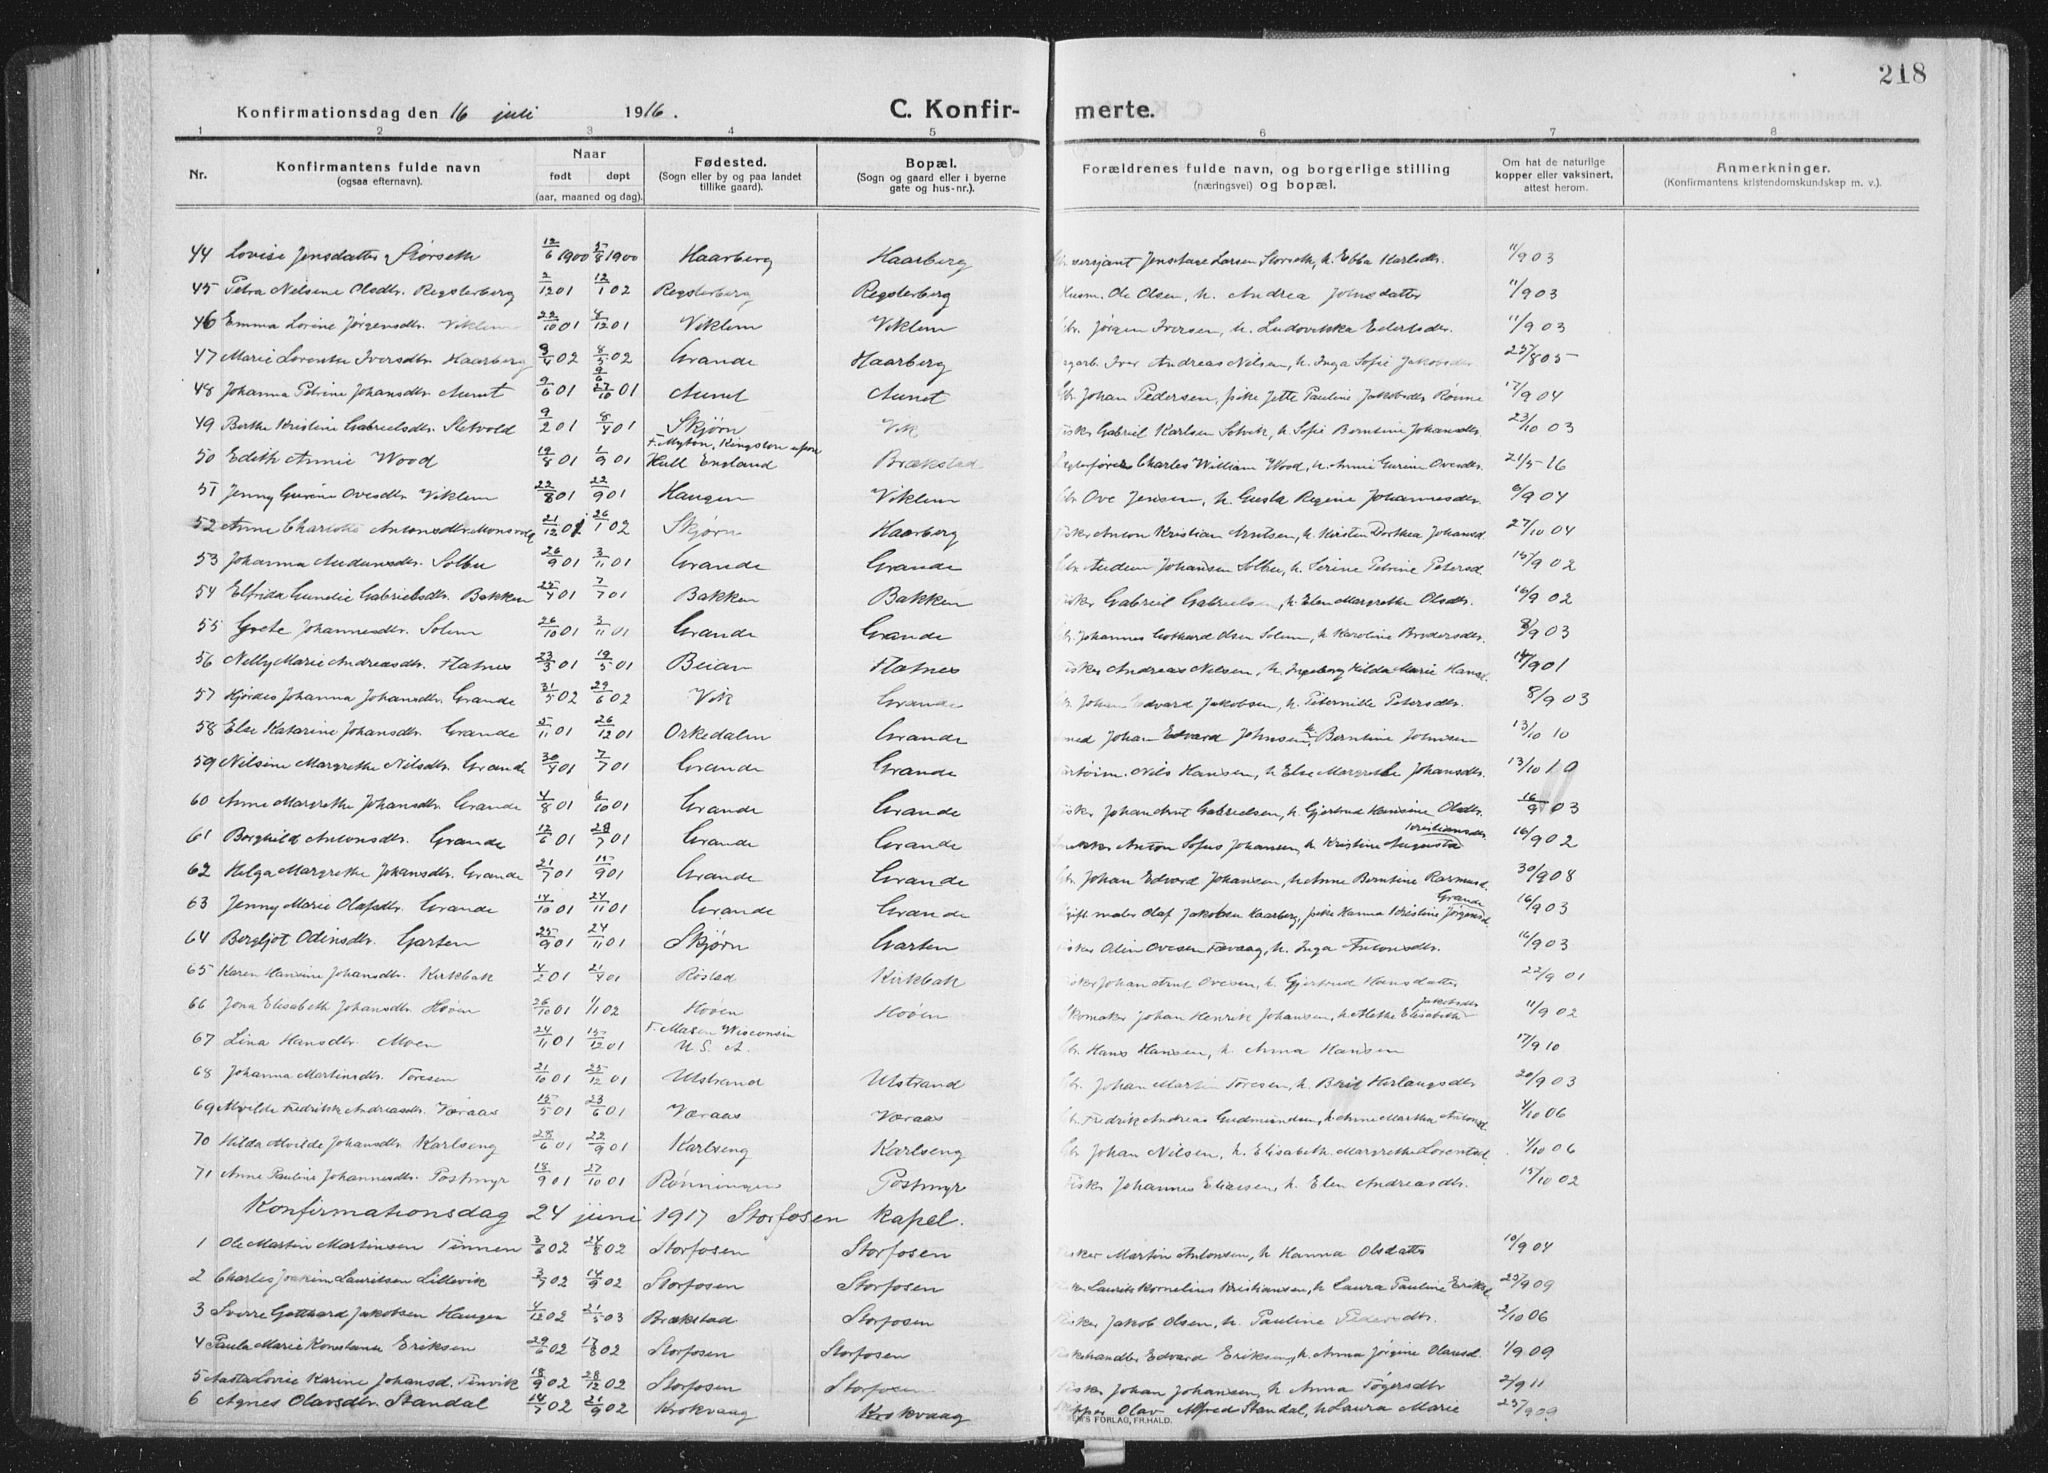 218
Konfirmationsdag den 16 juli 1916. C. Konfir- merte.
1 2 3 4 5 6 7 8
Nr. Konfirmantens fulde navn (ogsaa efternavn). Naar født døpt (aar, maaned og dag). Fødested. (Sogn eller by og paa landet tillike gaard). Bopæl. (Sogn og gaard eller i byerne gate og hus-nr.). Forældrenes fulde navn, og borgerlige stilling (næringsvei) og bopæl. Om hat de naturlige kopper eller vaksinert, attest herom. Anmerkninger. (Konfirmantens kristendomskundskap m. v.).
44 Lovise Jensdatter Storseth 12/6 1900 5/8 1900 Haarberg Haarberg sersjant Larsen Storseth, h. Ebba Karlsdtr. 11/9 03
45 Petra Nilsine Olsdtr. Regsterberg 2/12 01 12/1 02 Regsterberg Regsterberg Husm. Ole Olsen, h. Andrea Johnsdatter 11/9 03
46 Emma Lorine Jørgensdtr. Viklem 22/10 01 8/12 01 Viklem Viklem Gbr. Jørgen Iversen, h. Ludovikka Edertsdtr. 11/9 03
47 Marie Lorentse Iversdtr. Haarberg 9/4 02 8/5 02 Grande Haarberg Iver Andreas Nilsen, h. Inga Sofie Jakobsdtr 25/8 05
48 Johanna Petrine Johansdtr. Aunet 9/6 01 27/10 01 Aunet Aunet Gbr. Johan Pedersen, pike Jette Pauline Jakobsdtr Rønne 17/9 04
49 Berthe Kristine Gabrielsdtr. Sletvold 9/2 01 8/4 01 Skjørn Vik Fisker Gabriel Karlsen Solvik, h. Sofie Berntine Johansdtr. 23/10 03
50 Edith Annie Wood 12/8 01 1/9 01 F. Myton, Kingston upon Hull England Brækstad Charles William Wood, h. Anne Gurine Ovesdtr. 21/5-16
51 Jenny Gurine Ovesdtr. Viklem 22/8 01 22/9 01 Haugen Viklem Gbr. Ove Jensen, h. Gusta Regine Johannesdtr. 6/9 04
52 Anne Charlotte Antonsdtr. 21/12 01 26/1 02 Skjørn Haarberg Fisker Anton Kristian Arntsen, h. Kirsten Dorthea Johansd. 27/10 04
53 Johanna Audunsdtr. Solbu 26/9 01 3/11 01 Grande Grande Gbr Audun Johansen Solbu, h. Serine Petrine Petersd. 15/9 02
54 Elfrida Gundie Gabrielsdtr. Bakken 25/4 01 7/7 01 Bakken Bakken Fisker Gabriel Gabrielsen, h. Elen Margrethe Olsdtr. 16/9 02
55 Grete Johannesdtr. Solem 26/10 01 3/11 01 Grande Grande Gbr. Johannes Gothard Olsen Solem, h. Karoline Brodersdtr. 8/9 03
56 Nelly Marie Andreasdtr. Flatnes 23/3 01 19/5 01 Beian Flatnes Fisker Andreas Nilsen, h. Ingeborg Hilda Marie Hansd. 14/9 01
57 Hjørdis Johanna Johansdtr. Grande 31/5 02 29/6 02 Vik Grande Gbr. Johan Edvard Jakobsen, h. Peternille Petersdtr. 8/9 03
58 Else Katarine Johansdtr. Grande 5/11 01 26/12 01 Orkedalen Grande smed Johan Edvard Johnsen, h. Berntine Johnsen 13/10 10
59 Nilsine Margrethe Nilsdtr. Grande 30/4 01 7/7 01 Grande Grande Nils Hansen, h. Else Margrethe Johansdtr. 13/10 10
60 Anne Margrethe Johansdtr. Grande 4/8 01 6/10 01 Grande Grande Fisker Johan Arnt Gabrielsen, h. Gjertrud Hansine Olsdtr. 16/9 03
61 Borghild Antonsdtr. Grande 12/6 01 28/7 01 Grande Grande Anton Sofus Johansen, h. Kristine Augusta Kristiansdtr. 16/9 02
62 Helga Margrethe Johansdtr. Grande 21/7 01 15/9 01 Grande Grande Gbr. Johan Edvard Johansen, h. Anne Berntine Rasmusd. 30/9 08
63 Jenny Marie Olafsdtr. Grande 14/10 01 24/11 01 Grande Grande gift maler Olaf Jakobsen Haarberg, pike Hanna Kristine Jørgensd. Grande 16/9 03
64 Bergljot Odinsdtr. Garten 25/9 01 24/11 01 Skjørn Garten Fisker Odin Ovesen Tævaag, h. Inga Antonsdtr. 16/9 03
65 Karen Hansine Johansdtr. Kirkbak 4/2 01 21/4 01 Røstad Kirkbak Fisker Johan Arnt Ovesen, h. Gjertrud Hansdatter 22/9 01
66 Jona Elisabeth Johansdtr. Høven 26/10 01 1/1 02 Høven Høven Skomaker Johan Henrik Johansen, h. Alethe Elisabeth Jakobsdtr 11/9 02
67 Lina Hansdtr. Moen 24/11 01 15/12 01 F. Mason Wisconsin U. S. A. Gbr. Hans Hansen, h. Anna Hansen 17/9 10
68 Johanna Martinsdtr. Toresen 21/10 01 25/12 01 Utstrand Utstrand Gbr. Johan Martin Toresen, h. Berit Herlaugsdtr 20/9 03
69 Alvilde Fredrikke Andreasdtr. Væraas 15/5 01 23/6 01 Væraas Væraas Gbr. Fredrik Andreas Gudmundsen, h. Anne Martha Antonsd. 4/10 06
70 Hilda Alvilde Johansdtr. Karlseng 28/6 01 22/9 01 Karlseng Karlseng Gbr Johan Nilsen, h. Elisabeth Margrethe Lorentsd. 4/10 06
71 Anne Pauline Johannesdtr. Postmyr 18/9 01 27/10 01 Rønningen Postmyr Fisker Johannes Eliassen, h. Elen Andreasdtr. 15/10 02
Konfirmationsdag 24 juni 1917 Storfosen kapel.
1 Ole Martin Martinsen Tinnen 3/6 02 24/8 02 Storfosen Storfosen Fisker Martin Antonsen, h Hanna Olsdatter 10/9 04
2 Charles Joakim Lauritsen Lillevik 3/7 02 14/9 02 Storfosen Storfosen Laurits Kornelius Kristiansen, h Laura Pauline Eriksd 25/9 09
3 Sverre Gotthard Jakobsen Haugen 4/12 02 21/5 03 Brækstad Storfosen Fisker Jakob Olsen, h. Pauline Pedersdtr. 2/10 06
4 Paula Marie Konstanse Eriksen 29/6 02 17/8 02 Storfosen Storfosen Fiskehandler Edvard Eriksen, h. Anna Jørgine Olausd. 1/9 09
5 Aasta Lovise Karine Johansd. Tinvik 18/9 02 28/12 02 Storfosen Storfosen Fisker Johan Johansen, h. Anna Tøgersdtr 2/9 11
6 Agnes Olavsdtr. Standal 14/7 02 21/9 02 Krokvaag Krokvaag Skipper Olav Alfred Standal, h Laura Marie 25/9 09
FORLAG, FR.HALD.